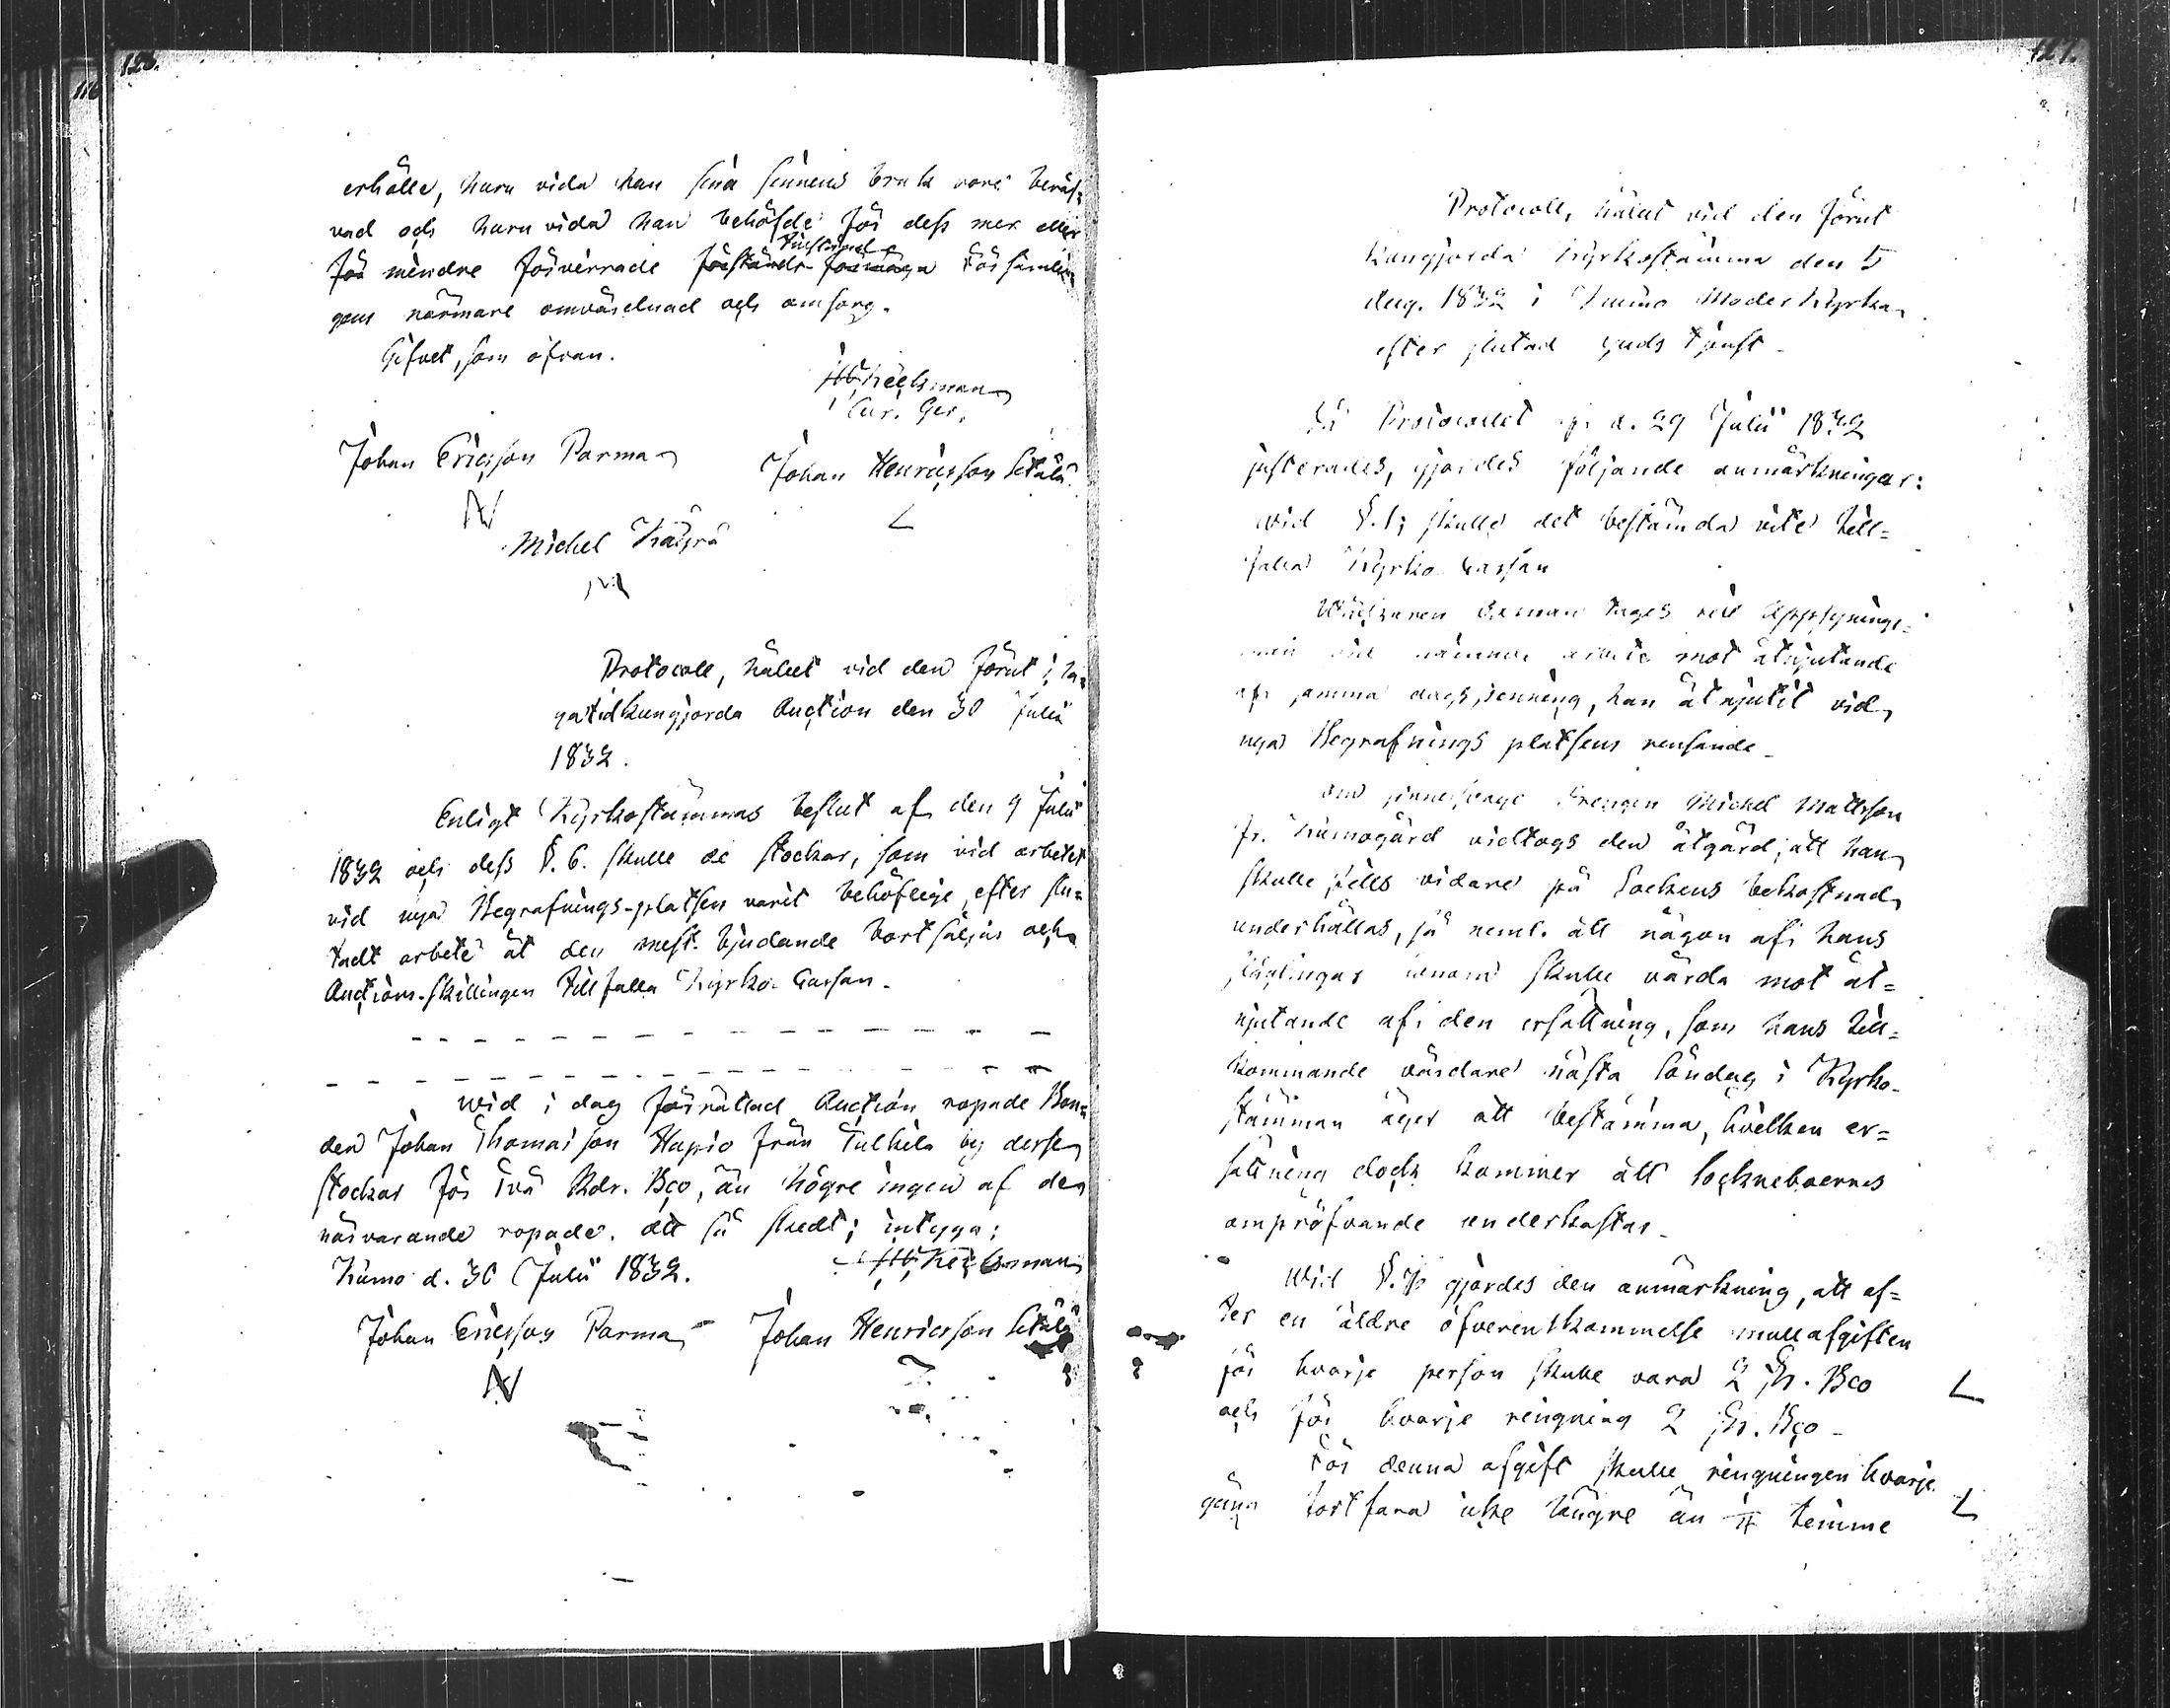 126.
116
erhålle, huru vida han sina sinnens bruk vore beröf-
vad och huru vida han behöfde för dess mer eller
för mindre förvirrade förstånds-förmåga Församlin-
Förstånd
gens närmare omvårdnad och omsorg.
Gifvet, som ofvan.
Keckman
Cur. Ger.
Johan Ericsson Parma
Johan Henricsson Sctälä
Michel
Protocoll, hållet vid den förut i la-
gatid kungjorda Auction den 30 Julii
1832.
Enligt Kyrkostämmas beslut af den 9 Julii
1832 och dess §. 6. skulle de stockar, som vid arbetet
vid nya Begrafnings-platsen varit behöflige, efter slu-
tadt arbete åt den mest bjudande bortsäljas och
Auctions-skillingen tillfalla Kyrko-Cassan.
Wid i dag förrättad Auction ropade Bon-
den Johan Thomasson Hapio från Tulkila by desse
stockar för två Rdr. Bco, än högre ingen af de
närvarande ropade. Att så skedt; intyga:
Kumo d. 30 Julii 1832.
Keckman
Johan Ericsson Parma
Johan Henricsson Sctälä
127.
Protocoll, hållet vid den förut
kungjorda Kyrkostämma den 5
Aug. 1832 i Kumo Moder Kyrka
efter slutad Guds tjenst.
Då Protocollet af d. 29 Julii 1832
justerades, gjordes följande anmärkningar:
Wid §. 1; skulle det bestämda vite till-
falla Kyrko-cassan
Wäktaren Öxman tages till Uppsynings-
man vid nämnde arbete mot åtnjutande
af samma dagspenning, han åtnjutit vid
nya Begrafnings platsens rensande.
Om sinnessvage Drengen Michel Mattsson
fr. Kumogård vidtogs den åtgärd; att han
skulle tills vidare på Sockens bekostnad
underhållas, så neml. att någon af hans
slägtingar honom skulle vårda mot åt-
njutande af den ersättning, som hans till-
kommande vårdare nästa Söndag i Kyrko-
stämman äger att bestämma, hvilken er-
sättning dock kommer att Sockneboernes
ompröfvande underkastas.
Wid §. 7 gjordes den anmärkning, att ef-
ter en äldre öfverenskommelse mullafgiften
för hvarje person skulle vara 2 sk. Bco
och för hvarje ringning 2 sk. Bco.
För denna afgift skulle ringningen hvarje
gång fortfara icke längre än timme